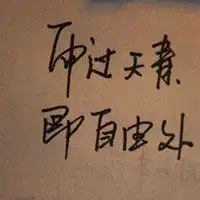 雨过天青
即自由处